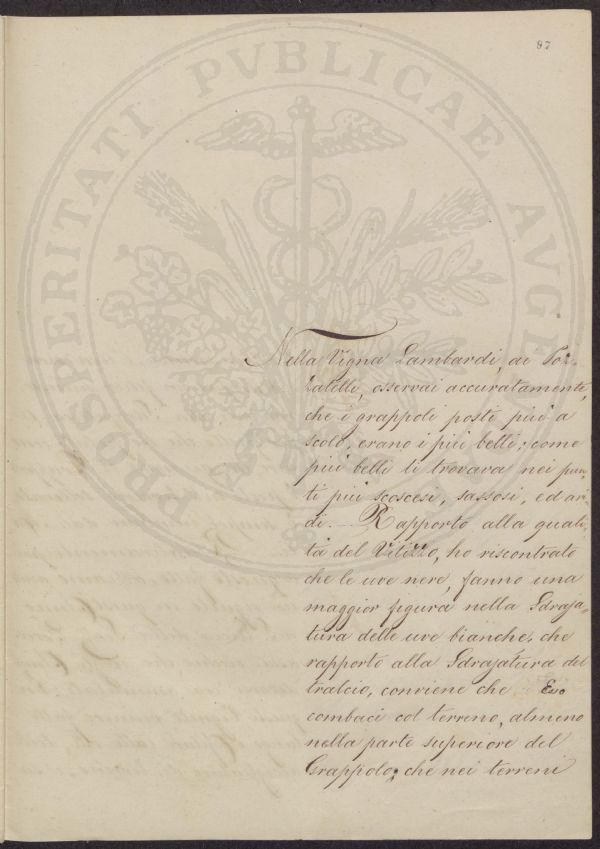 97
PROSPERITATI PVBLICAE AVGENDAE
Nella Vigna Lambardi, ai Poz-
zatelli, osservai accuratamente,
che i grappoli posti più a
scolo, erano i più belli; come
più belli li trovava nei pun-
ti più scoscesi, sassosi, ed ari-
di. Rapporto alla quali-
tà del Vitizzo, ho riscontrato
che le uve nere, fanno una
maggior figura nella Sdraja-
tura delle uve bianche. che
rapporto alla Sdrajatura del
tralcio, conviene che Esso
combaci col terreno, almeno
nella parte superiore del
Grappolo; che nei terreni